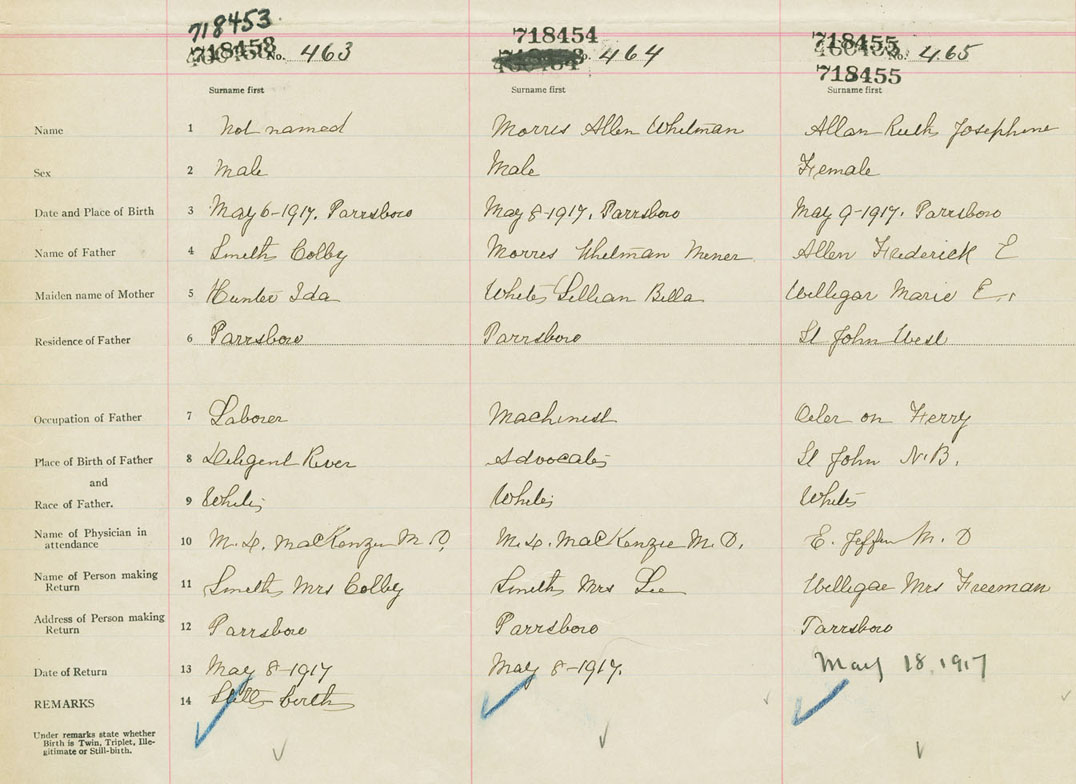 718453 718454 718455
718453 No. 463 464 No. 465
718455
Surname first Surname first Surname first
Name 1 Not named Morris Allen Whitman Allan Ruth Josephine
Sex 2 Male Male Female
Date and Place of Birth 3 May 6-1917. Parrsboro May 8-1917. Parrsboro May 9-1917. Parrsboro
Name of Father 4 Smith Colby Morris Whitman Miner Allen Frederick E
Maiden name of Mother 5 Hunter Ida White Lillian Bella Willigar Marie E.
Residence of Father 6 Parrsboro Parrsboro St John West
Occupation of Father 7 Laborer Machinist Oiler on Ferry
Place of Birth of Father 8 Diligent River Advocate St John N.B.
and
Race of Father. 9 White White White
Name of Physician in
attendance 10 M.D. MacKenzie M.D. M.D. MacKenzie M.D. E. Jeffers M.D
Name of Person making
Return 11 Smith Mrs Colby Smith Mrs Lee Willigar Mrs Freeman
Address of Person making
Return 12 Parrsboro Parrsboro Parrsboro
Date of Return 13 May 8-1917 May 8-1917. May 18.1917
REMARKS 14 Still birth
Under remarks state whether
Birth is Twin, Triplet, Ille-
gitimate or Still-birth.